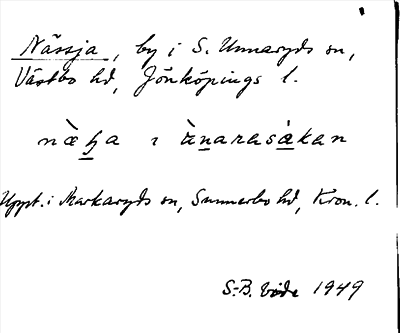 Nässja, by i S. Unnaryds sn,
Västbo hd, Jönköpings l.
næ̀ꜧa ı ɤ̀narasàkan
Uppt. i Markaryds sn, Sunnerbo hd, Kron. l.
S-B. Vide 1949